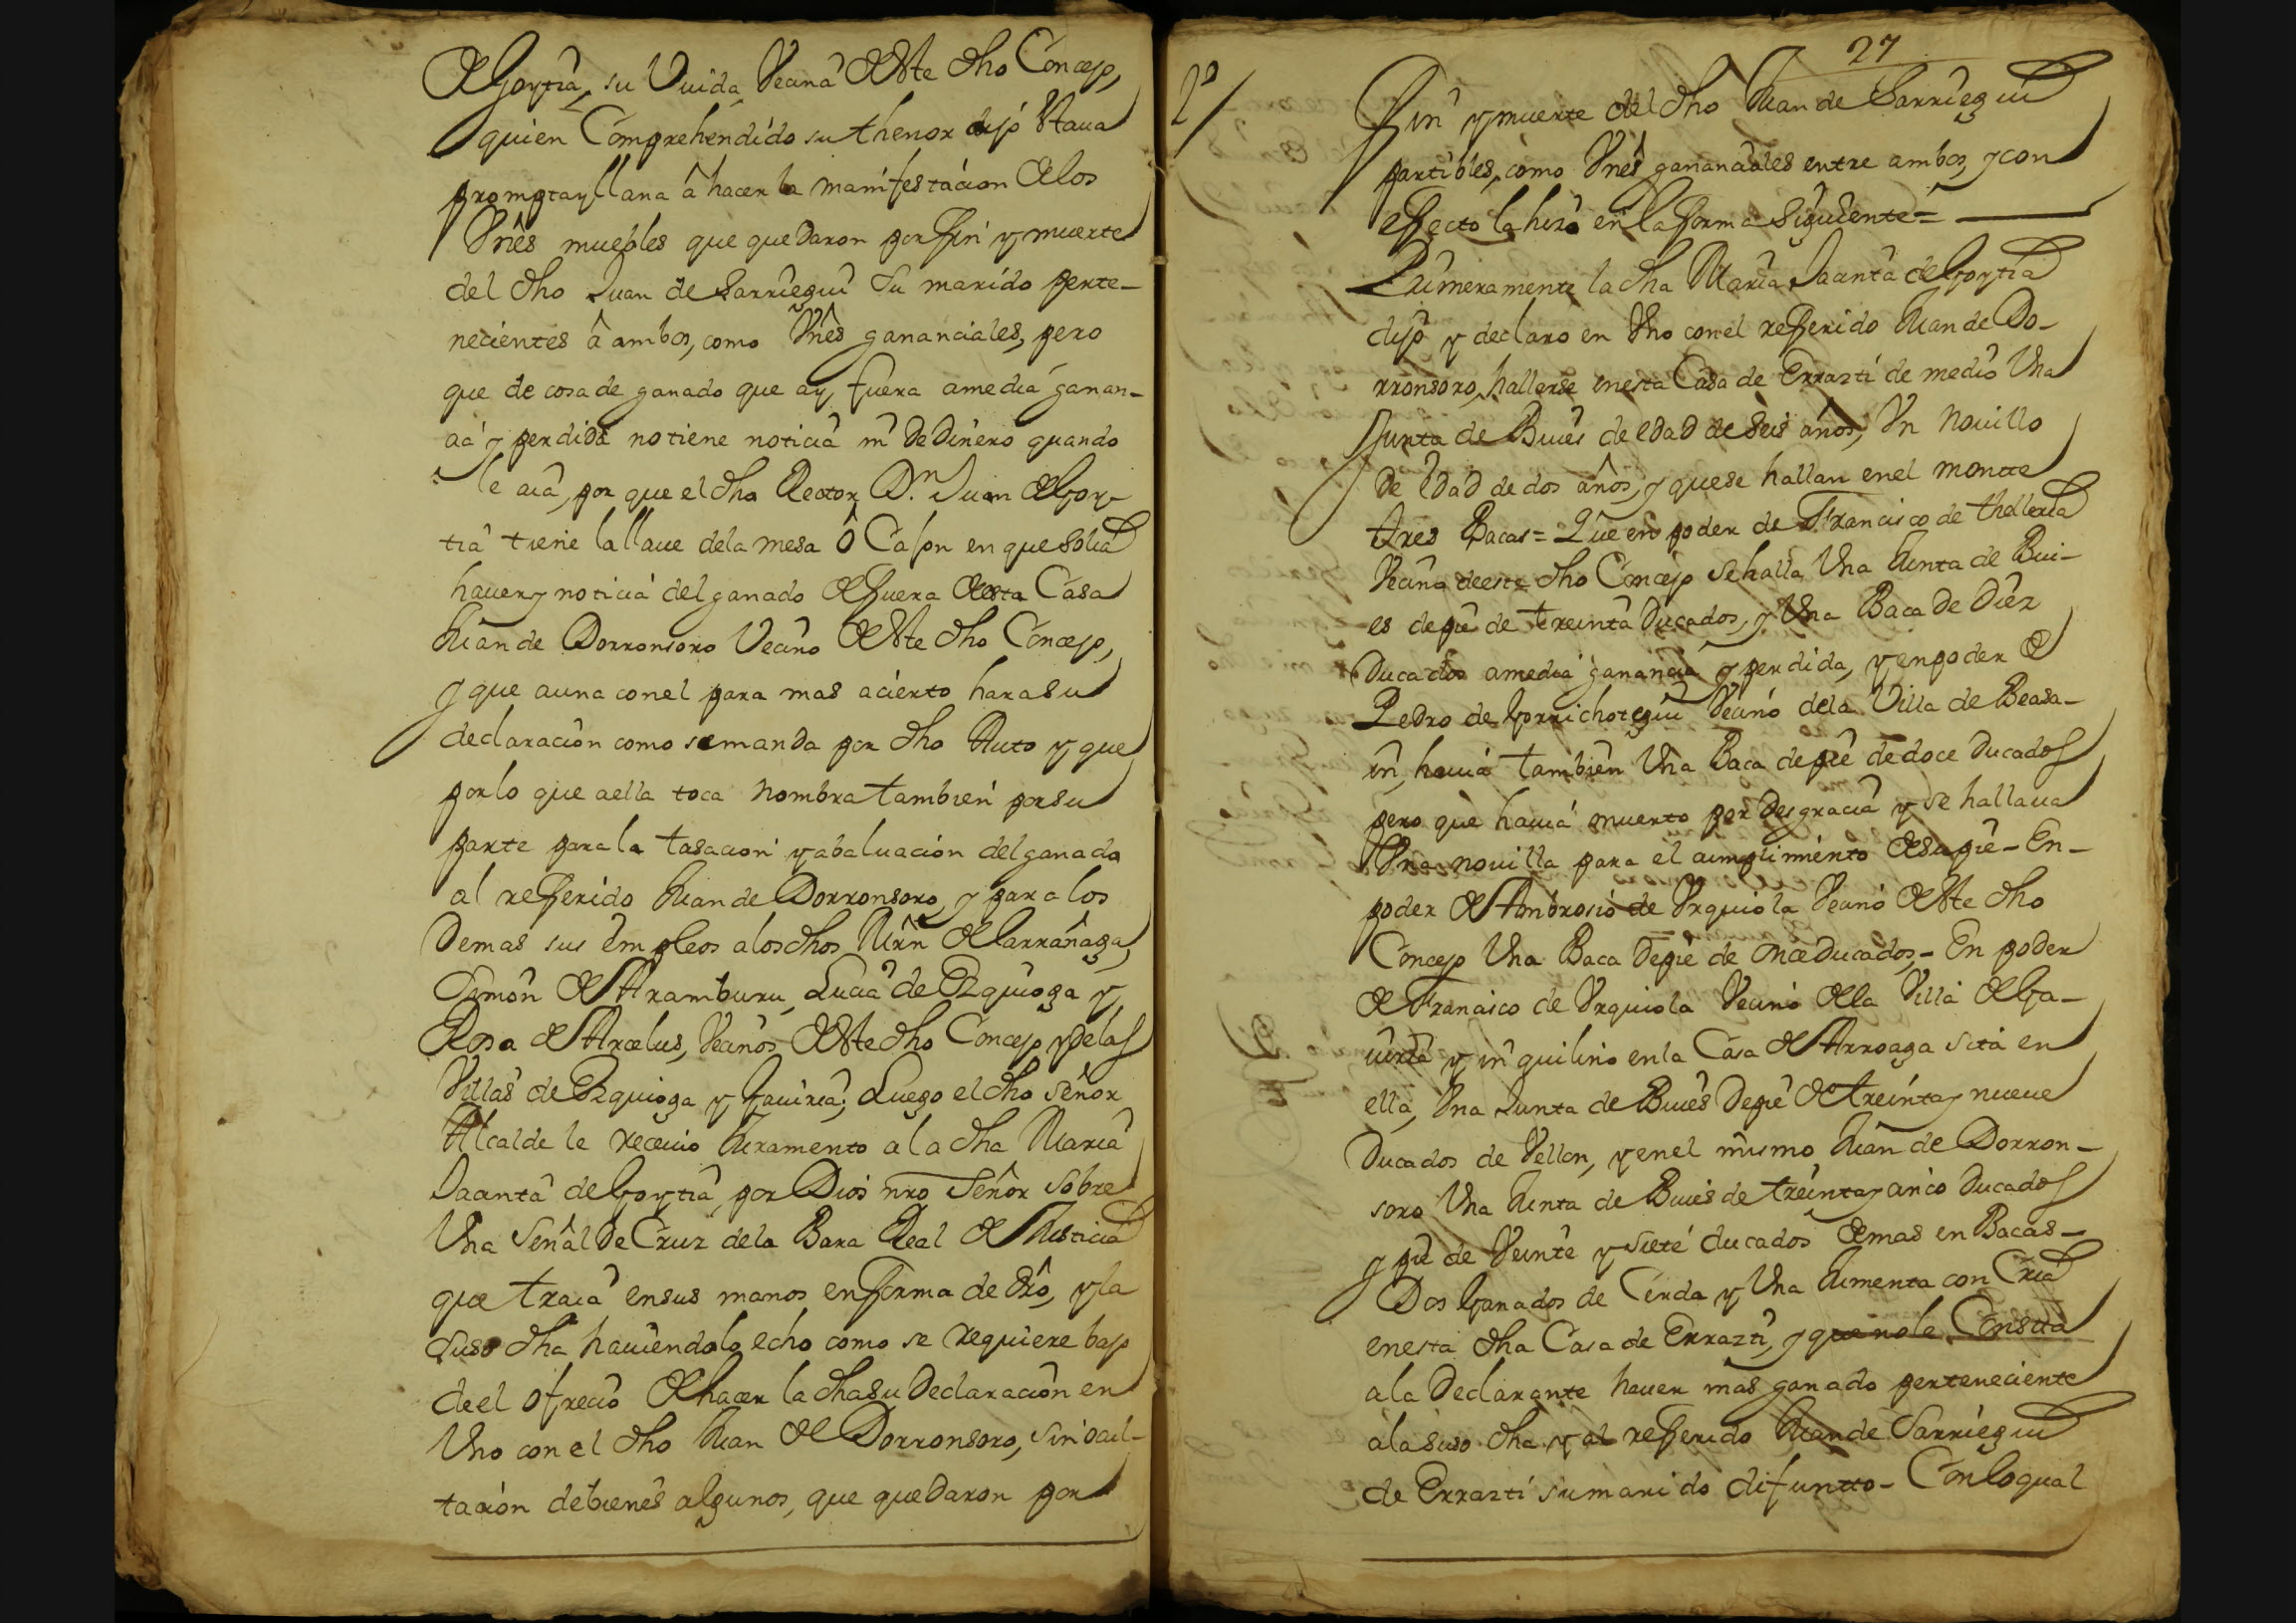 de Goytia, su Viuda Vecina de este dho Concejo,
quien Comprehendido su thenor dijo estaua
prompta y llana â hacer la manifestacion de los
Vnês muebles que quedaron por fin y muerte
del dho Juan de Sarriegui su marido perte-
necientes â ambos, como Vnês gananciales, pero
que de cosa de ganado que ay fuera a media ganan-
cia y perdida no tiene noticia ni de Dinero quando
le aia, por que el dho Rector Dn. Juan de Goy-
tia tiene la llaue dela mesa ô Cajon en que solia
hauer, y noticia del ganado de fuera de esta Casa
Juan de Dorronsoro Vecino de este dho Concejo,
y que a una con el para mas acierto hara su
declaracion como se manda por dho Auto y que
por lo que a ella toca nombra tambien por su
parte para la tasacion y abaluacion del ganado
al referido Juan de Dorronsoro, y para los
Demas sus empleos a los dhos Mrn de Larrañaga,
Simon de Aramburu, Lucia de Ezquioga y
Rosa de Arcelus, Vecinos de este dho Concejo y de las
Villas de Ezquioga y Gauiria; Luego el dho Señor
Alcalde le receuio Juramento a la dha Maria
Jacinta de Goytia, por Dios nro Señor sobre
Vna Señal De Cruz dela Bara Real de Justicia
que traia en sus manos en forma de dro, y la
suso dha hauiendolo echo como se requiere bajo
de el ofrecio de hacer la dha su Declaracion en
Vno con el dho Juan de Dorronsoro, sin ocul-
tacion de bienes algunos, que quedaron por
27
2º
Fin y muerte del dho Juan de Sarriegui
partibles, como Vnês gananciales entre ambos, y con
effecto la hizo en la forma Siguiente =
Primeramente la dha Maria Jacinta de Goytia
dijo y declaro en Vno con el referido Juan de Do-
rronsoro, hallarse en esta Casa de Errazti de medio Vna
Junta de Bueis de edad de seis años, Vn Nouillo
De edad de dos años, y que se hallan en el montte
tres Bacas = Que en poder de Francisco de thelleria
Vecino de este dho Concejo se halla Vna Junta de Bui-
es de pie de treinta Ducados, y Vna Baca De Diez
Ducados a media ganancia y perdida, y en poder de
Pedro de Gorrichotegui Vecino dela Villa de Beasa-
in, hauia tambien Vna Baca de pie de doce Ducados
pero que hauia muerto por desgracia y se hallaua
Vna nouilla para el cumplimiento de su pie - En-
poder de Ambrosio de Vrquiola Vecino de este dho
Concejo Vna Baca De pie de once Ducados, - En poder
de Francisco de Vrquiola Vecino de la Villa de Ga-
uiria y inquilino en la Casa de Arroaga sita en
ella, Vna Junta de Bueis De pie de treinta y nueue
Ducados de Vellon, y en el mismo Juan de Dorron-
soro Vna Junta de Bueis de treinta y cinco Ducados
y pie de Veinte y siete ducados de mas en Bacas -
Dos Ganados de Cerda y Vna Jumenta con Cria
en esta dha Casa de Errazti, y que no le Consta
a la Declarante hauer mas ganado perteneciente
a la suso dha y al referido Juan de Sarriegui
de Errazti su marido difuntto - Con lo qual